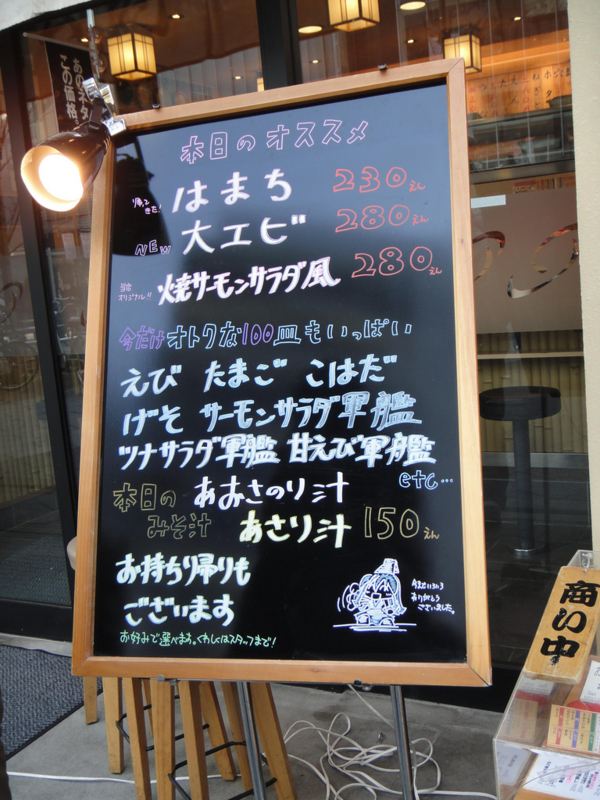 本日のオススメ
帰ってきた! はまち 230えん
NEW 大エビ 280えん
当店オリジナル!! 焼サーモンサラダ風 280えん
今だけオトクな100皿もいっぱい
えび たまご こはだ
げそ サーモンサラダ軍艦
ツナサラダ軍艦 甘えび軍艦
etc…
本日のみそ汁 あおさのり汁
あさり汁 150えん
お持ち帰りも
ございます
お好みで選べます。くわしくはスタッフまで!
ありがとう
ございました。
商い中
この価格